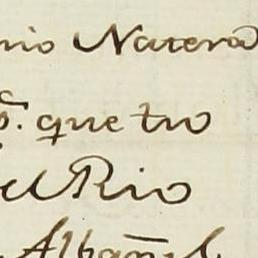 nio Natera
s. que tío
el Rio
Albañil